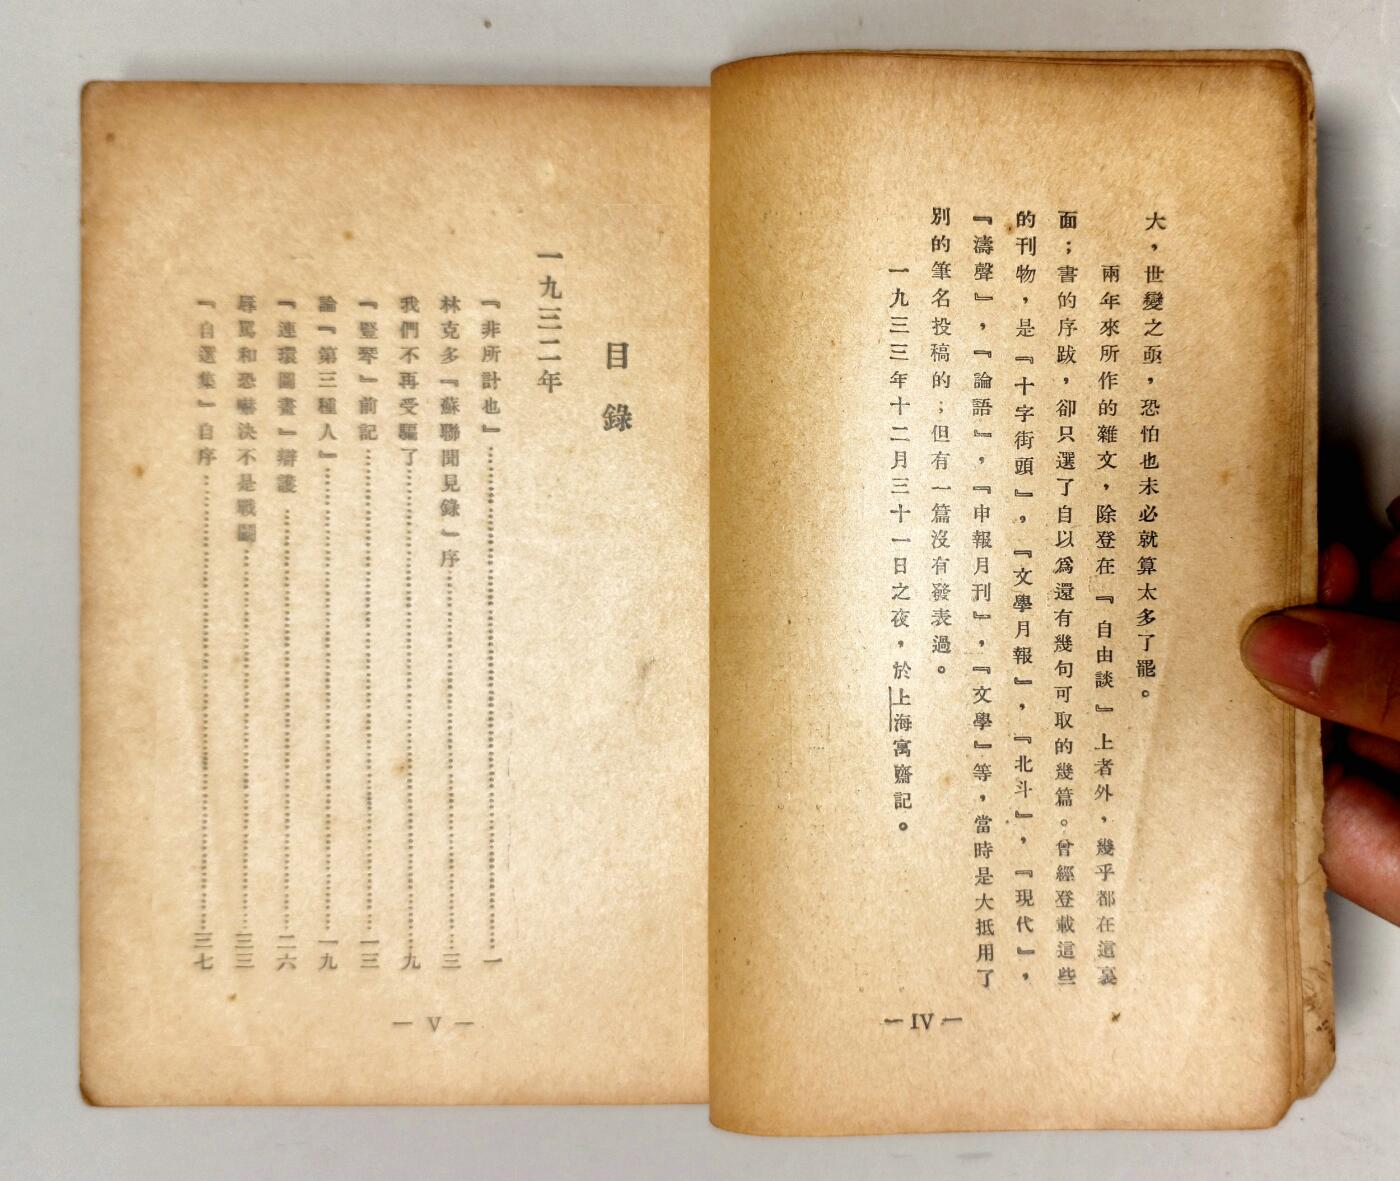 大，世變之亟，恐怕也未必就算太多了罷。
兩年來所作的雜文，除登在『自由談』上者外，幾乎都在這裏
面；書的序跋，卻只選了自以爲還有幾句可取的幾篇。曾經登載這些
的刊物，是『十字街頭』，『文學月報』，『北斗』，『現代』，
『濤聲』，『論語』，『申報月刊』，『文學』等，當時是大抵用了
別的筆名投稿的；但有一篇沒有發表過。
一九三三年十二月三十一日之夜，於上海寓齋記。
— IV —
目錄
一九三二年
『非所計也』……………………一
林克多『蘇聯聞見錄』序……………………三
我們不再受騙了……………………九
『豎琴』前記……………………一三
論『第三種人』……………………一九
『連環圖畫』辯護……………………二六
辱罵和恐嚇決不是戰鬭……………………三三
『自選集』自序……………………三七
— V —